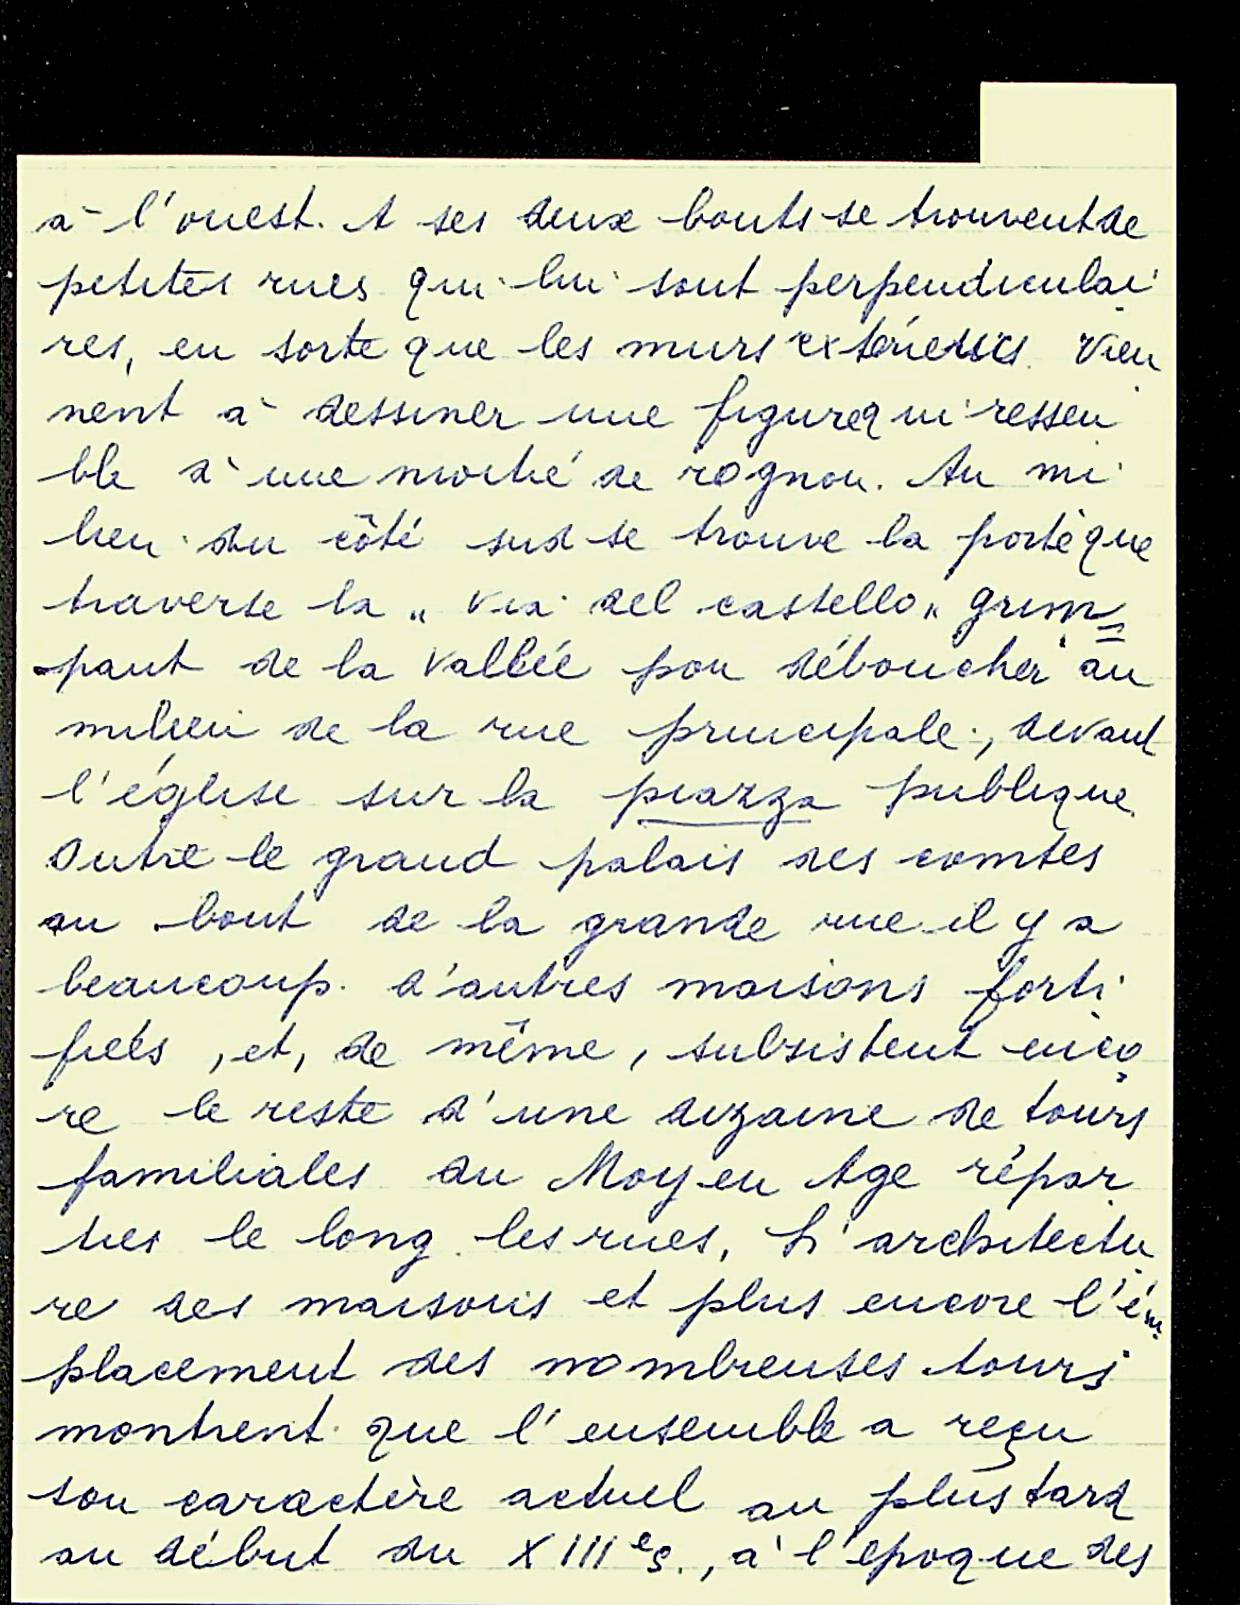 à l'ouest. A ses deux bouts se trouvent de
petites rues qui lui sont perpendiculai
res, en sorte que les murs extérieurs vien
nent à dessiner une figure qui ressem
ble à une moitié de rognon. Au mi
lieu du côté sud se trouve la porte que
traverse la „ via del castello „ grim=
pant de la vallée pou déboucher au
milieu de la rue principale, devant
l'église sur la piazza publique
Outre le grand palais des comtes
au bout de la grande rue il y a
beaucoup d'autres maisons forti
fiées, et, de même, subsistent enco
re le reste d'une dizaine de tours
familiales du Moyen Age répar
ties le long les rues, L'architectu
re des maisons et plus encore l'em
placement des nombreuses tours
montrent que l'ensemble a reçu
son caractère actuel au plus tard
au début du XIIIe s., à l'époque des